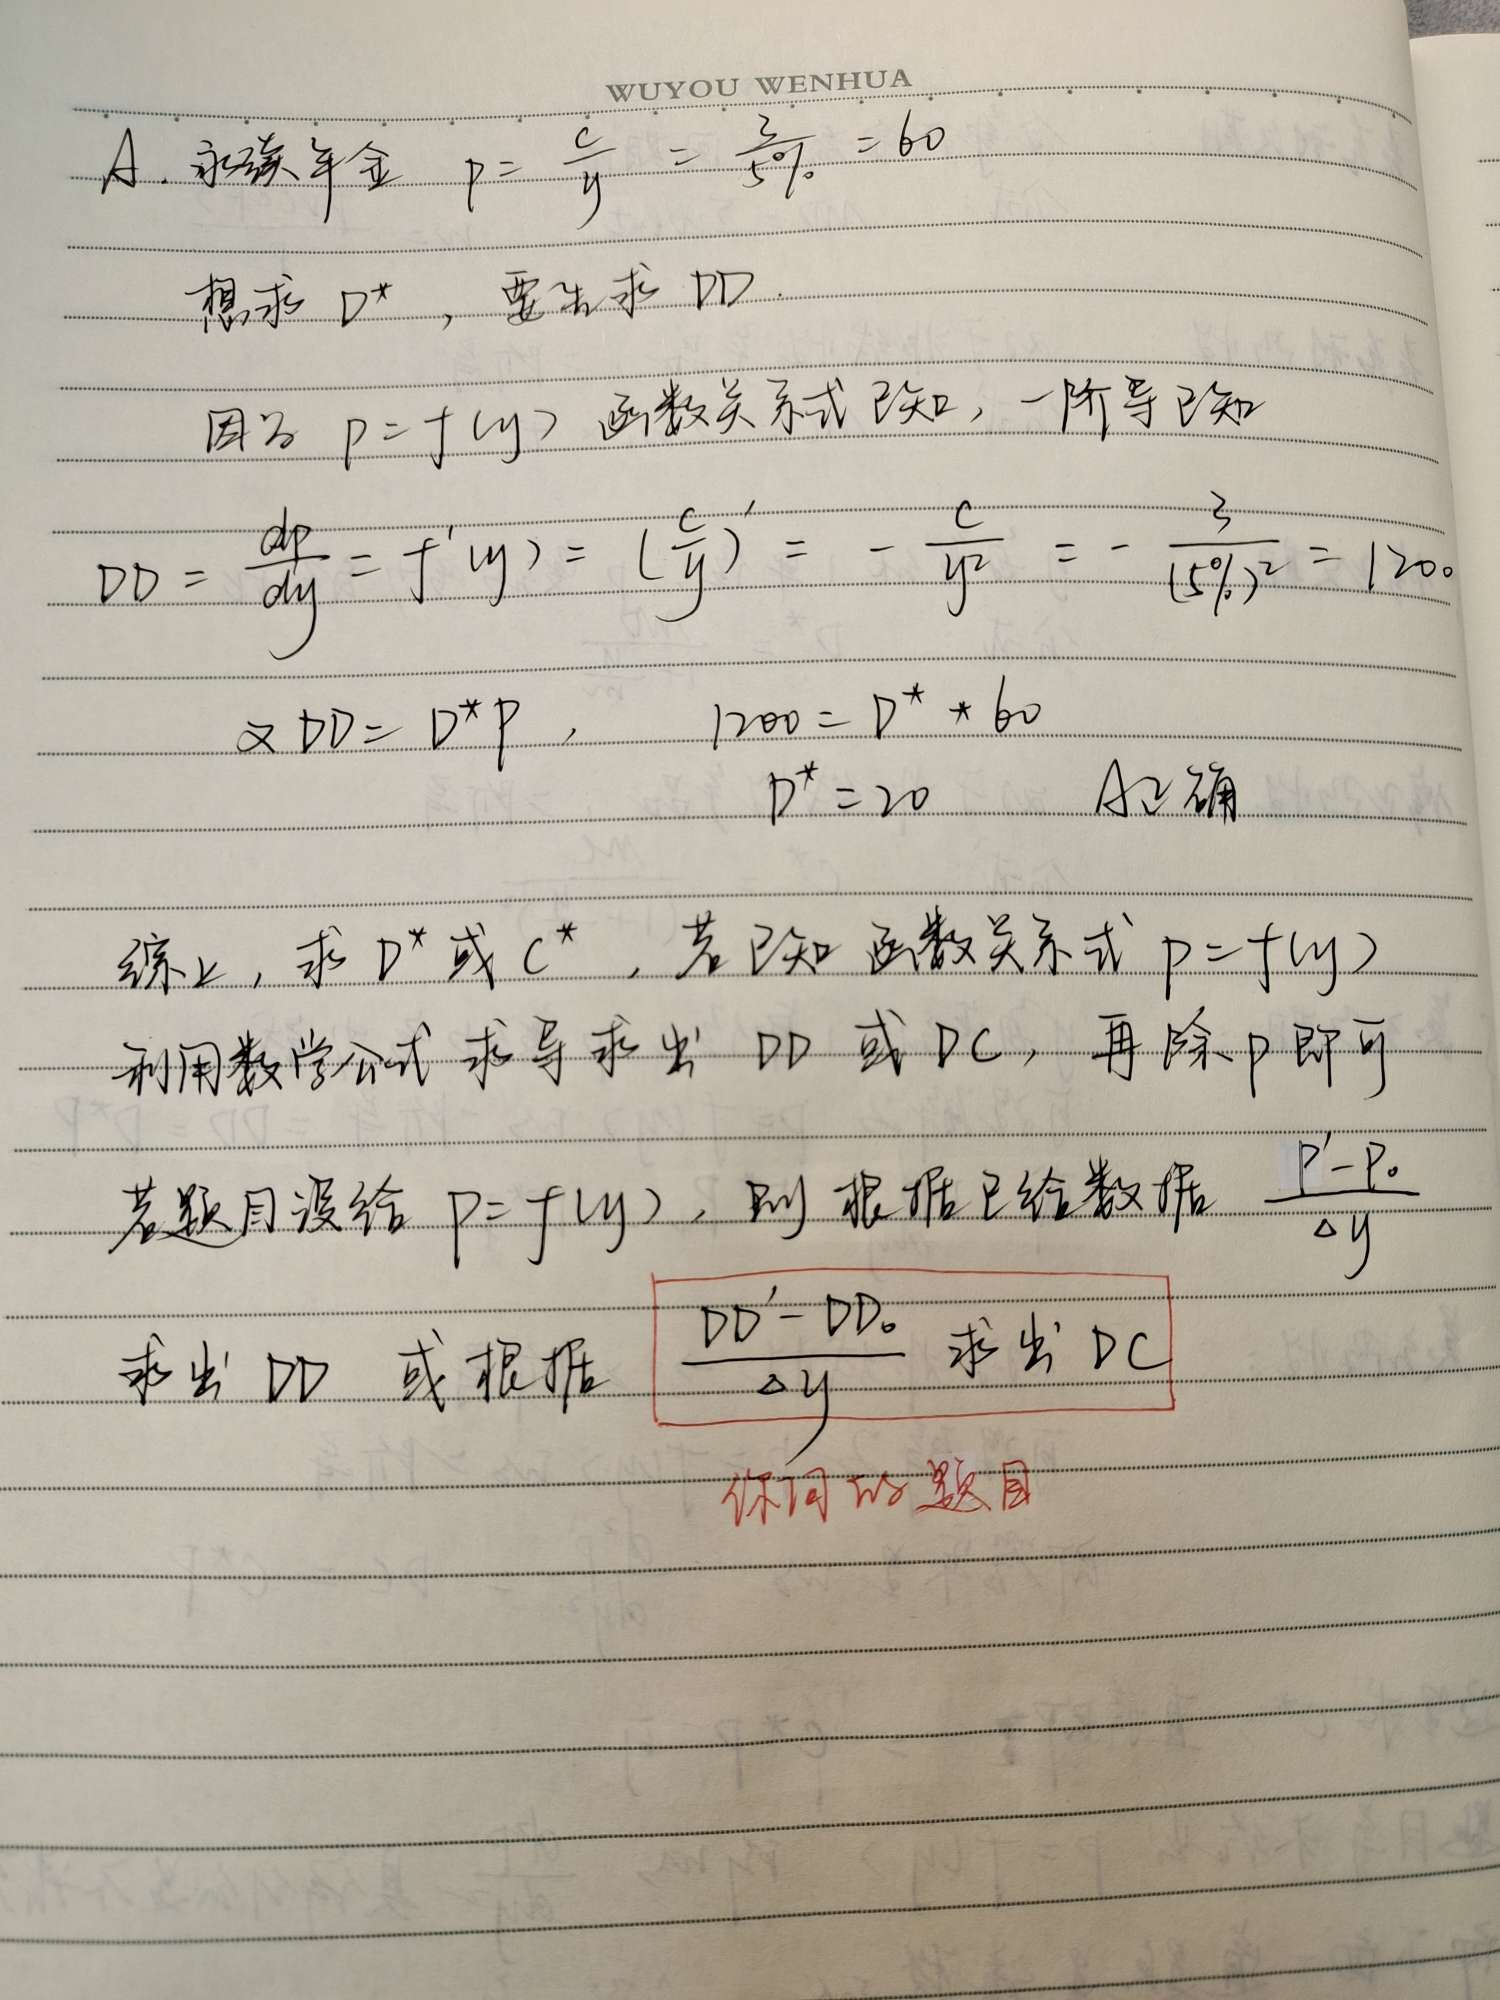 WUYOU WENHUA
A. 永续年金 P = c/y = 3/5% = 60
想求 D*, 要先求 DD.
因为 P = f(y) 函数关系式已知, 一阶导已知
DD = dp/dy = f'(y) = (c/y)' = - c/y² = - 3/(5%)² = 1200
又 DD = D*P, 1200 = D* * 60
D* = 20 A正确
综上, 求 D* 或 C*, 若已知 函数关系式 P = f(y)
利用数学公式 求导求出 DD 或 DC, 再除 P 即可
若题目没给 P = f(y), 则 根据已给数据 P'-P₀/△y
求出 DD 或根据 DD'-DD₀/△y 求出 DC
你问的题目